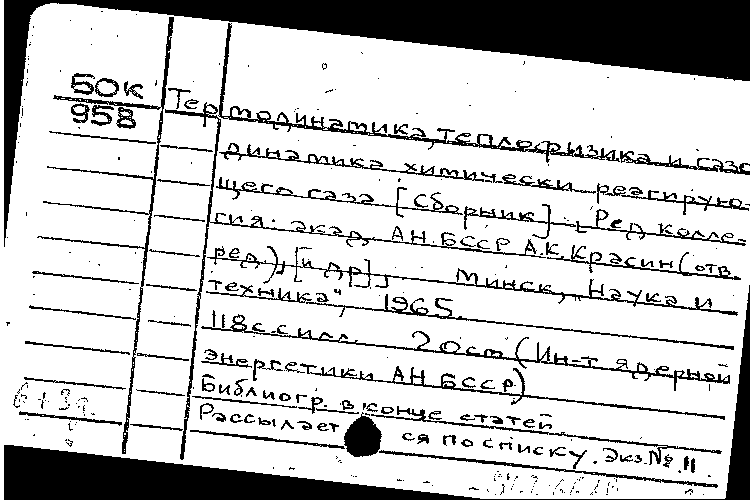 50к
958
Термодинамика, теплофизика и газо
динамика химически реагирую-
щего газа [Сборник]. [Ред колле-
гия: акад. АН БССР А.К. Красин (отв.
ред), [и др], Минск, „Наука и
техника", 1965.
118 с. с илл. 20 cm (Ин-т ядерной
энергетики АН БССР)
Библиогр. в конце статей.
Рассылается по списку. Экз. № 11.